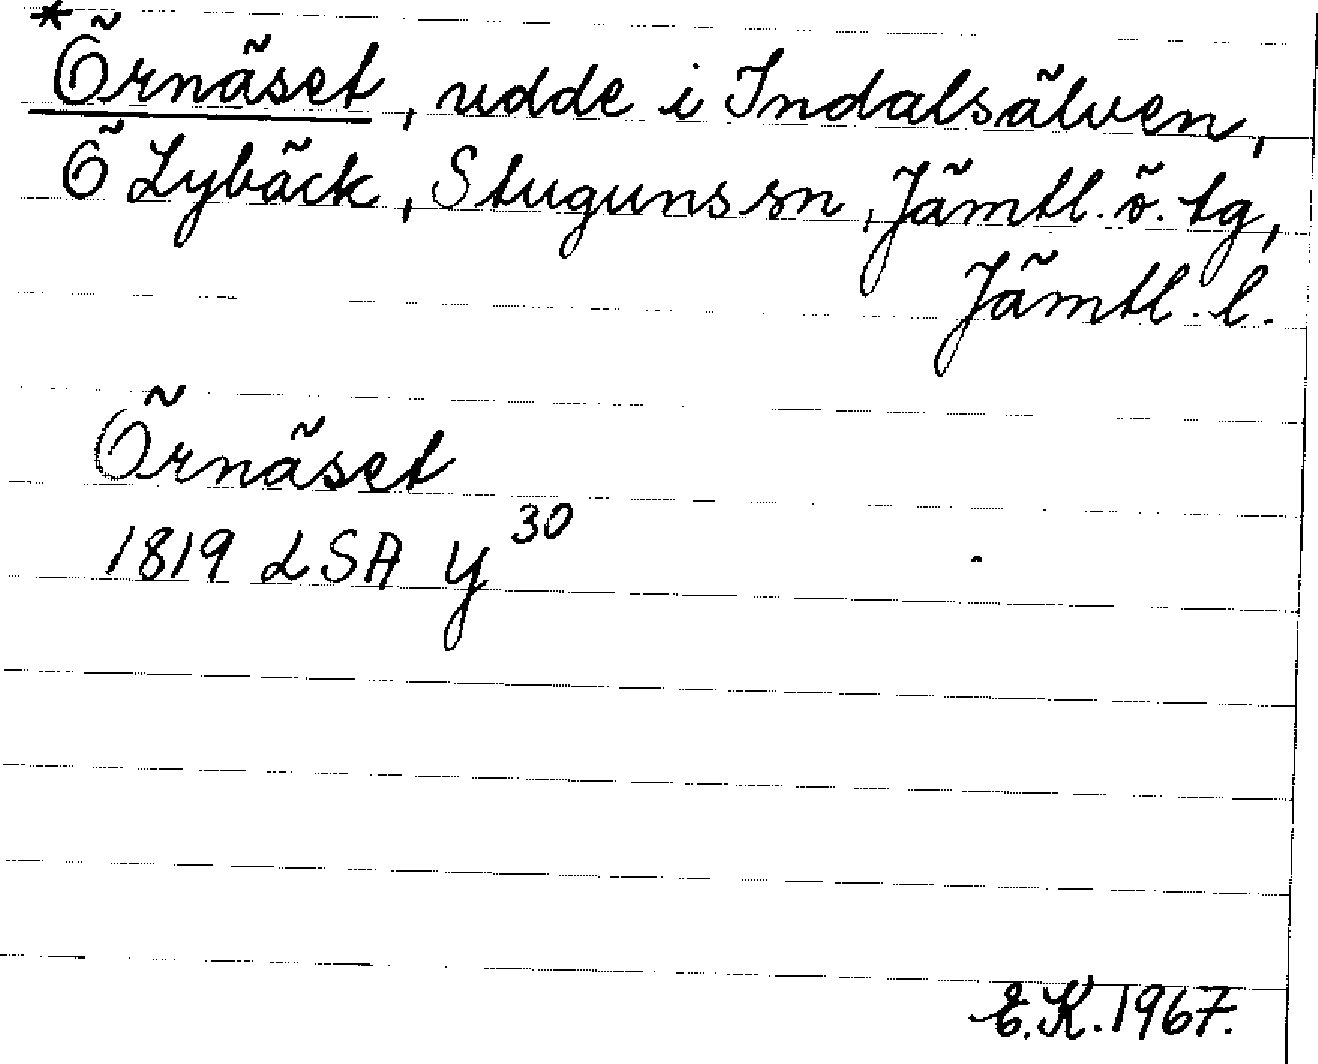 *Örnäset, udde i Indalsälven,
Ö Lybäck, Stuguns sn, Jämtl. ö. tg,
Jämtl. l.
Örnäset
1819 LSA Y 30
E.K. 1967.